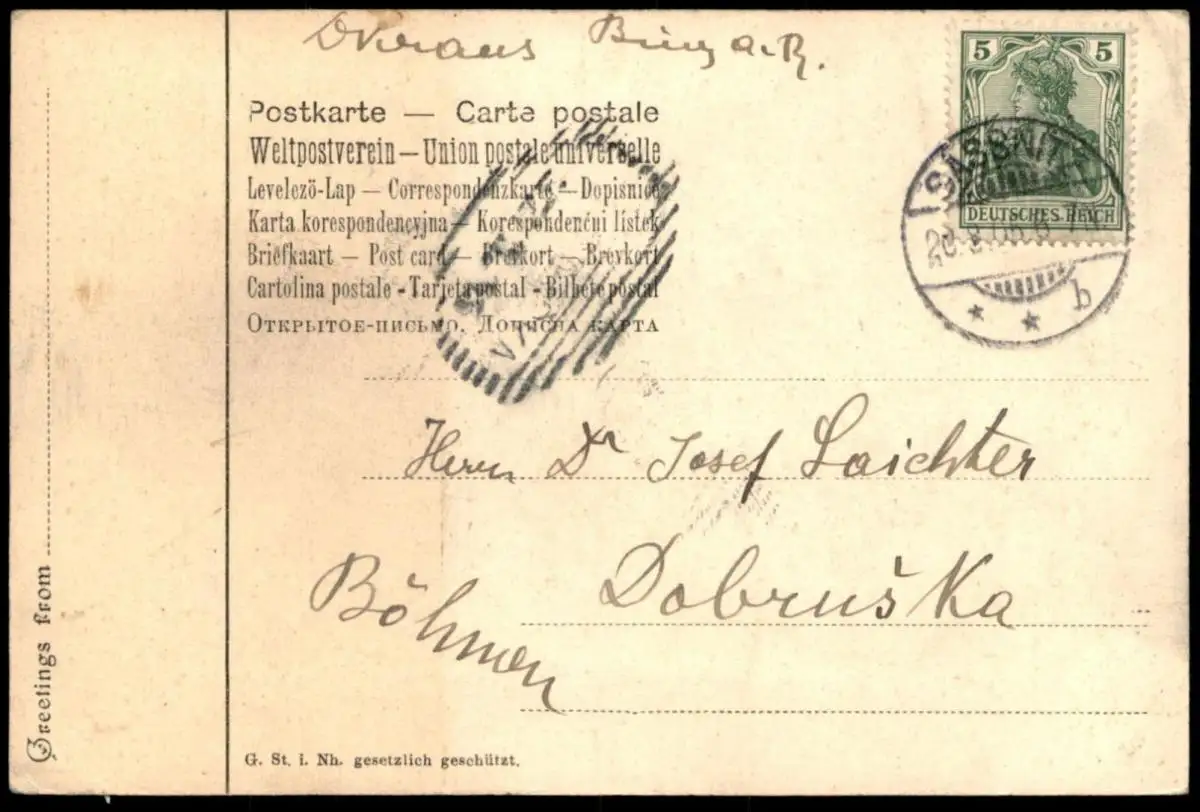 Kraus Binz a. R.
Postkarte — Carte postale
Weltpostverein — Union postale universelle
Levelezö-Lap — Correspondenzkarte — Dopisnice
Karta korespondencyjna — Korespondenčni listek
Briefkaart — Post card — Brefkort — Brevkort
Cartolina postale - Tarjeta postal - Bilhete postal
Открытое-письмо. Дописна карта
5 5
DEUTSCHES REICH
SASSNITZ
b
Herrn Dr Josef Laichter
Dobruška
Böhmen
G. St. i. Nh. gesetzlich geschützt.
Greetings from